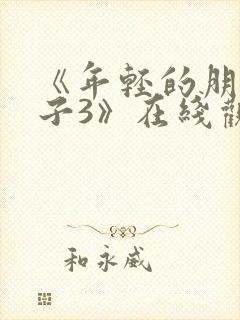 《年轻的朋
子3》在线观
和永威